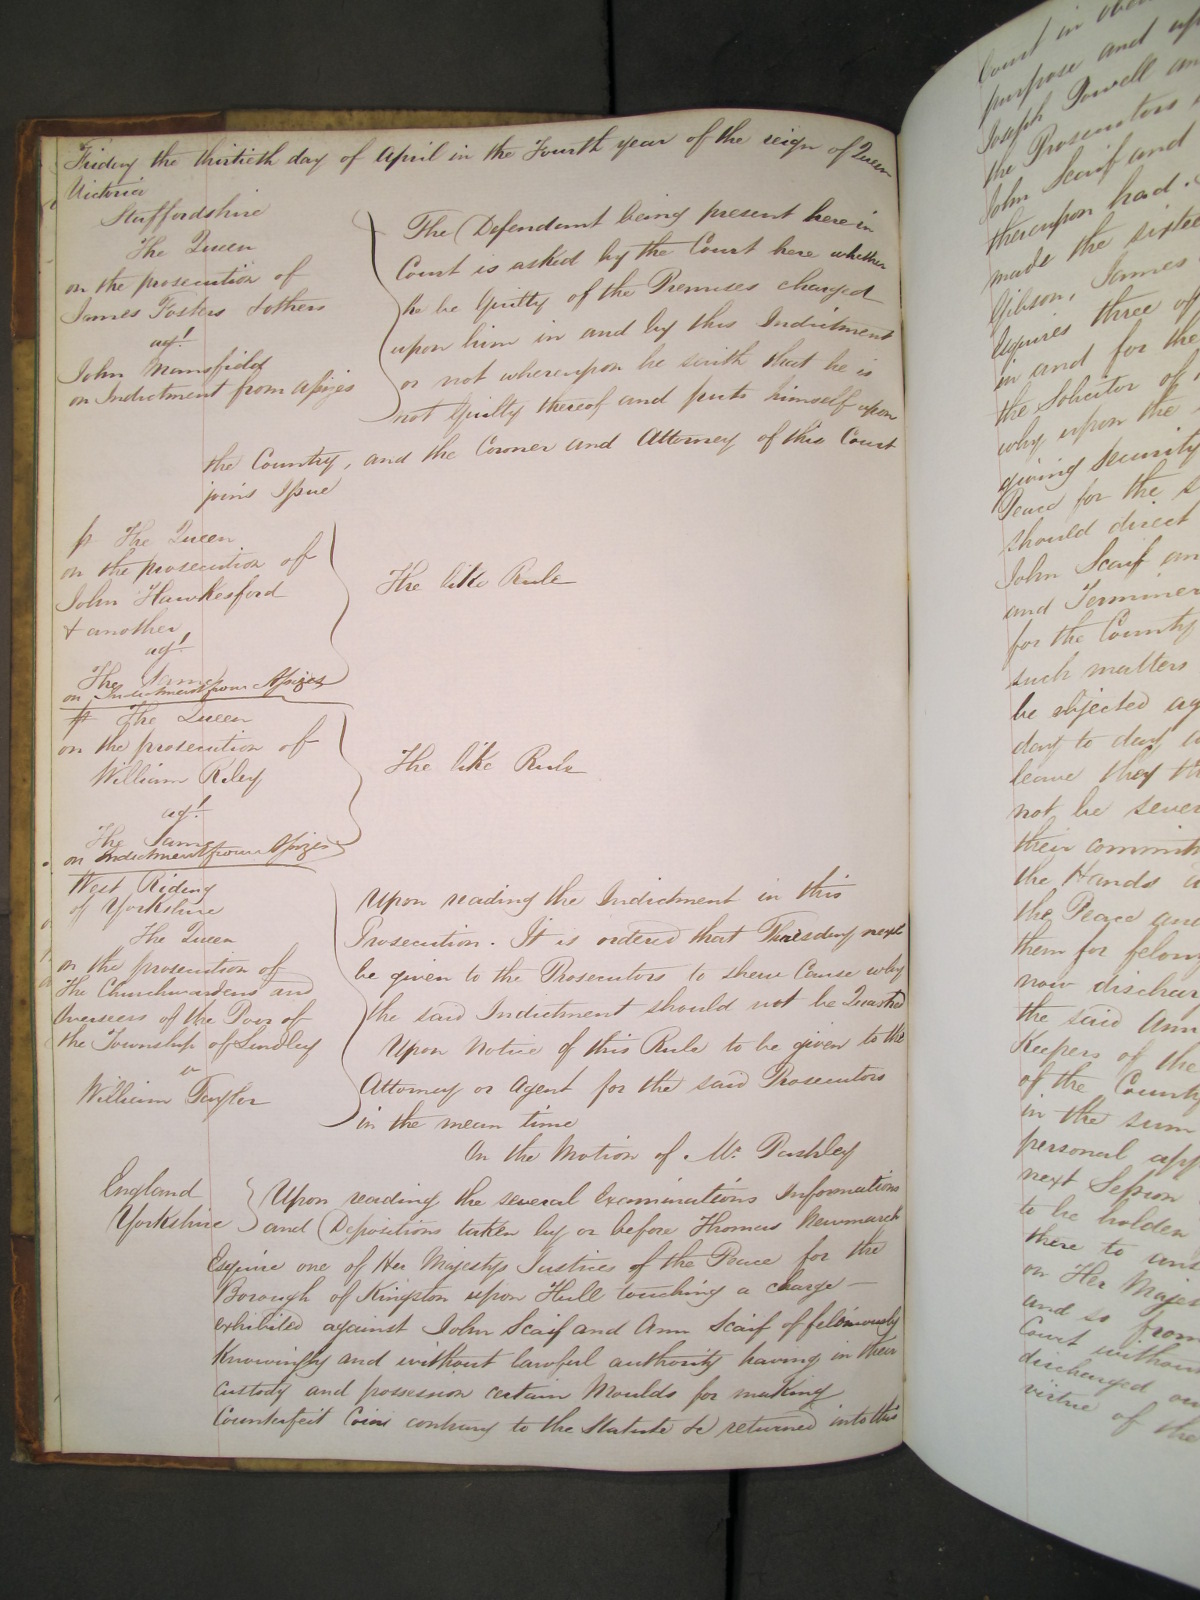 Friday the thirtieth day of April in the Fourth year of the reign of Queen
Victoria
Staffordshire
The Queen
on the prosecution of
James Fosters & others
agt
John Mansfield
on Indictment from Assizes
The Defendant being present here in
Court is asked by the Court here whether
he be Guilty of the Premises charged
upon him in and by this Indictment
or not whereupon he saith that he is
not Guilty thereof and puts himself upon
the Country, and the Coroner and Attorney of this Court
joins Issue
The Queen
on the prosecution of
John Hawkesford
& another
agt
The Same
on Indictment from Assizes
The like Rule
The Queen
on the prosecution of
William Riley
agt
The Same
on Indictment from Assizes
The like Rule
West Riding
of Yorkshire
The Queen
on the prosecution of
the Churchwardens and
Overseers of the Poor of
the Township of Lindley
v
William Taylor
Upon reading the Indictment in this
Prosecution. It is ordered that Thursday next
be given to the Prosecutors to shew Cause why
the said Indictment should not be Quashed
Upon Notice of this Rule to be given to the
Attorney or Agent for the said Prosecutors
in the mean time
On the Motion of Mr. Pashley
England
Yorkshire
Upon reading the several Examinations Informations
and Depositions taken by or before Thomas Newmarch
Esquire one of Her Majestys Justices of the Peace for the
Borough of Kingston upon Hull touching a charge
exhibited against John Scaif and Ann Scaif of feloniously
Knowingly and without lawful authority having in their
custody and possession certain Moulds for making
Counterfeit Coin contrary to the Statute &c returned into this
Court in
purpose and
Joseph Powell an
the Prosecutors
John Scaif and
thereupon had.
made the
Gibson, James
Esquires three of
in and for the
the Solicitor of
why upon the
giving security
Peace for the
should direct
John Scaif an
and Terminer
for the County
such matters
be objected
day to day
leave they
not be
their
the Hands
the Peace and
them for felony
now
the said Ann
Keepers of the
of the County
in the sum
personal
next Session
to be holden
there to
on Her
and so from
Court without
discharged
virtue of the